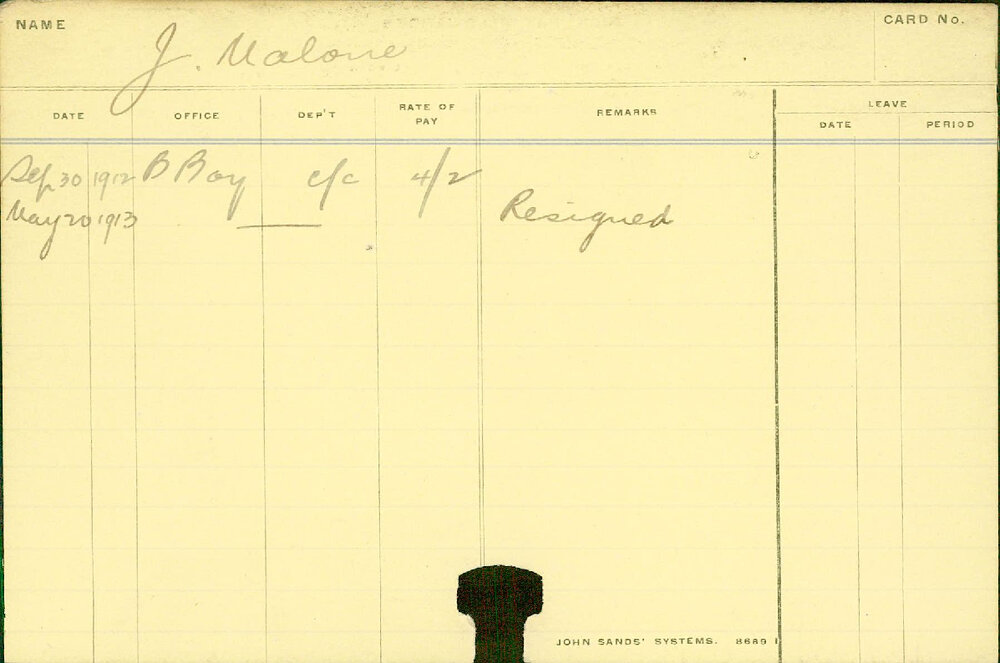 NAME
J. Malone
CARD No.
DATE OFFICE DEP'T RATE OF PAY REMARKS LEAVE
DATE PERIOD
Sep 30 1912 B Boy c/c 4/2
May 20 1913 Resigned
JOHN SANDS' SYSTEMS. 8689